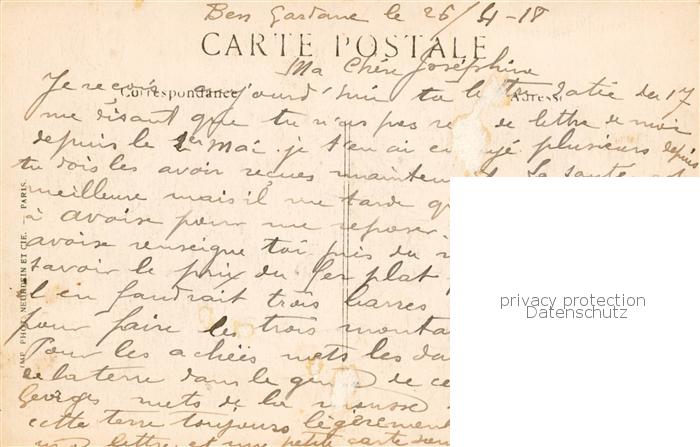 Ben Gardane le 26/4-18
CARTE POSTALE
Ma Chère Joséphine
Correspondance Adresse
Je reçois aujourd'hui ta lettre datée du 17
me disant que tu n'as pas re de lettre de moi
depuis le 1er Mai. je t'en ai en yé plusieurs depuis
tu dois les avoir reçues mainten la santé est
meilleure mais il me tarde
à avoise pour me reposer.
avoise renseigne toi près du
savoir le prix du fer plat
l en faudrait trois barres
pour faire les trois monta
Pour les achées mets les da
de la terre dans le gen de ce
Georges mets de la mousse
cette terre toujours légèrement
lettre et une petite carte
IMP. PHOT. NEURDEIN ET CIE. - PARIS.
privacy protection
Datenschutz